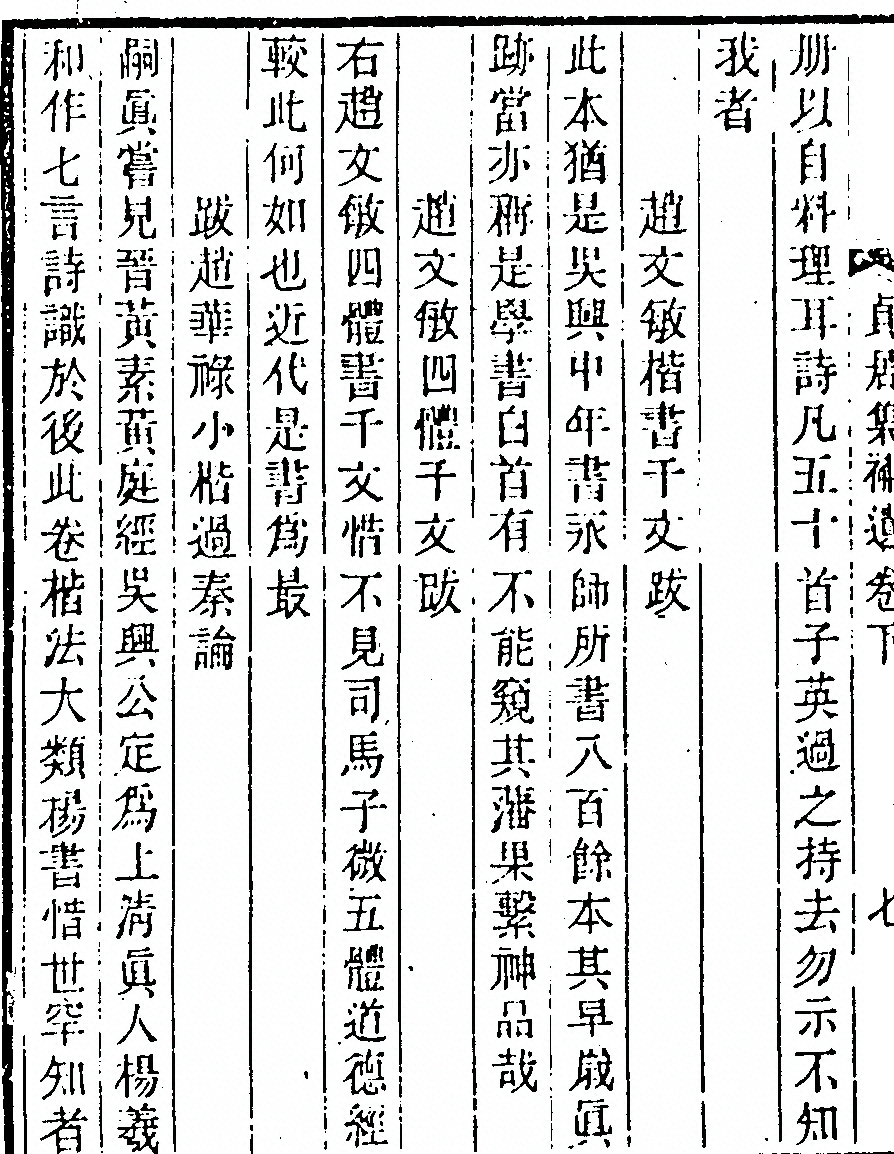 貞居集補遺卷下 七
册以自料理耳詩凡五十首子英過之持去勿示不知
我者
趙文敏楷書千文跋
此本猶是吳興中年書永師所書八百餘本其早歲眞
跡當亦稱是學書白首有不能窺其藩果繫神品哉
趙文敏四體千文跋
右趙文敏四體書千文惜不見司馬子微五體道德經
較此何如也近代是書爲最
跋趙華祿小楷過秦論
嗣眞嘗見晉黃素黃庭經吳興公定爲上清眞人楊羲
和作七言詩識於後此卷楷法大類楊書惜世罕知者